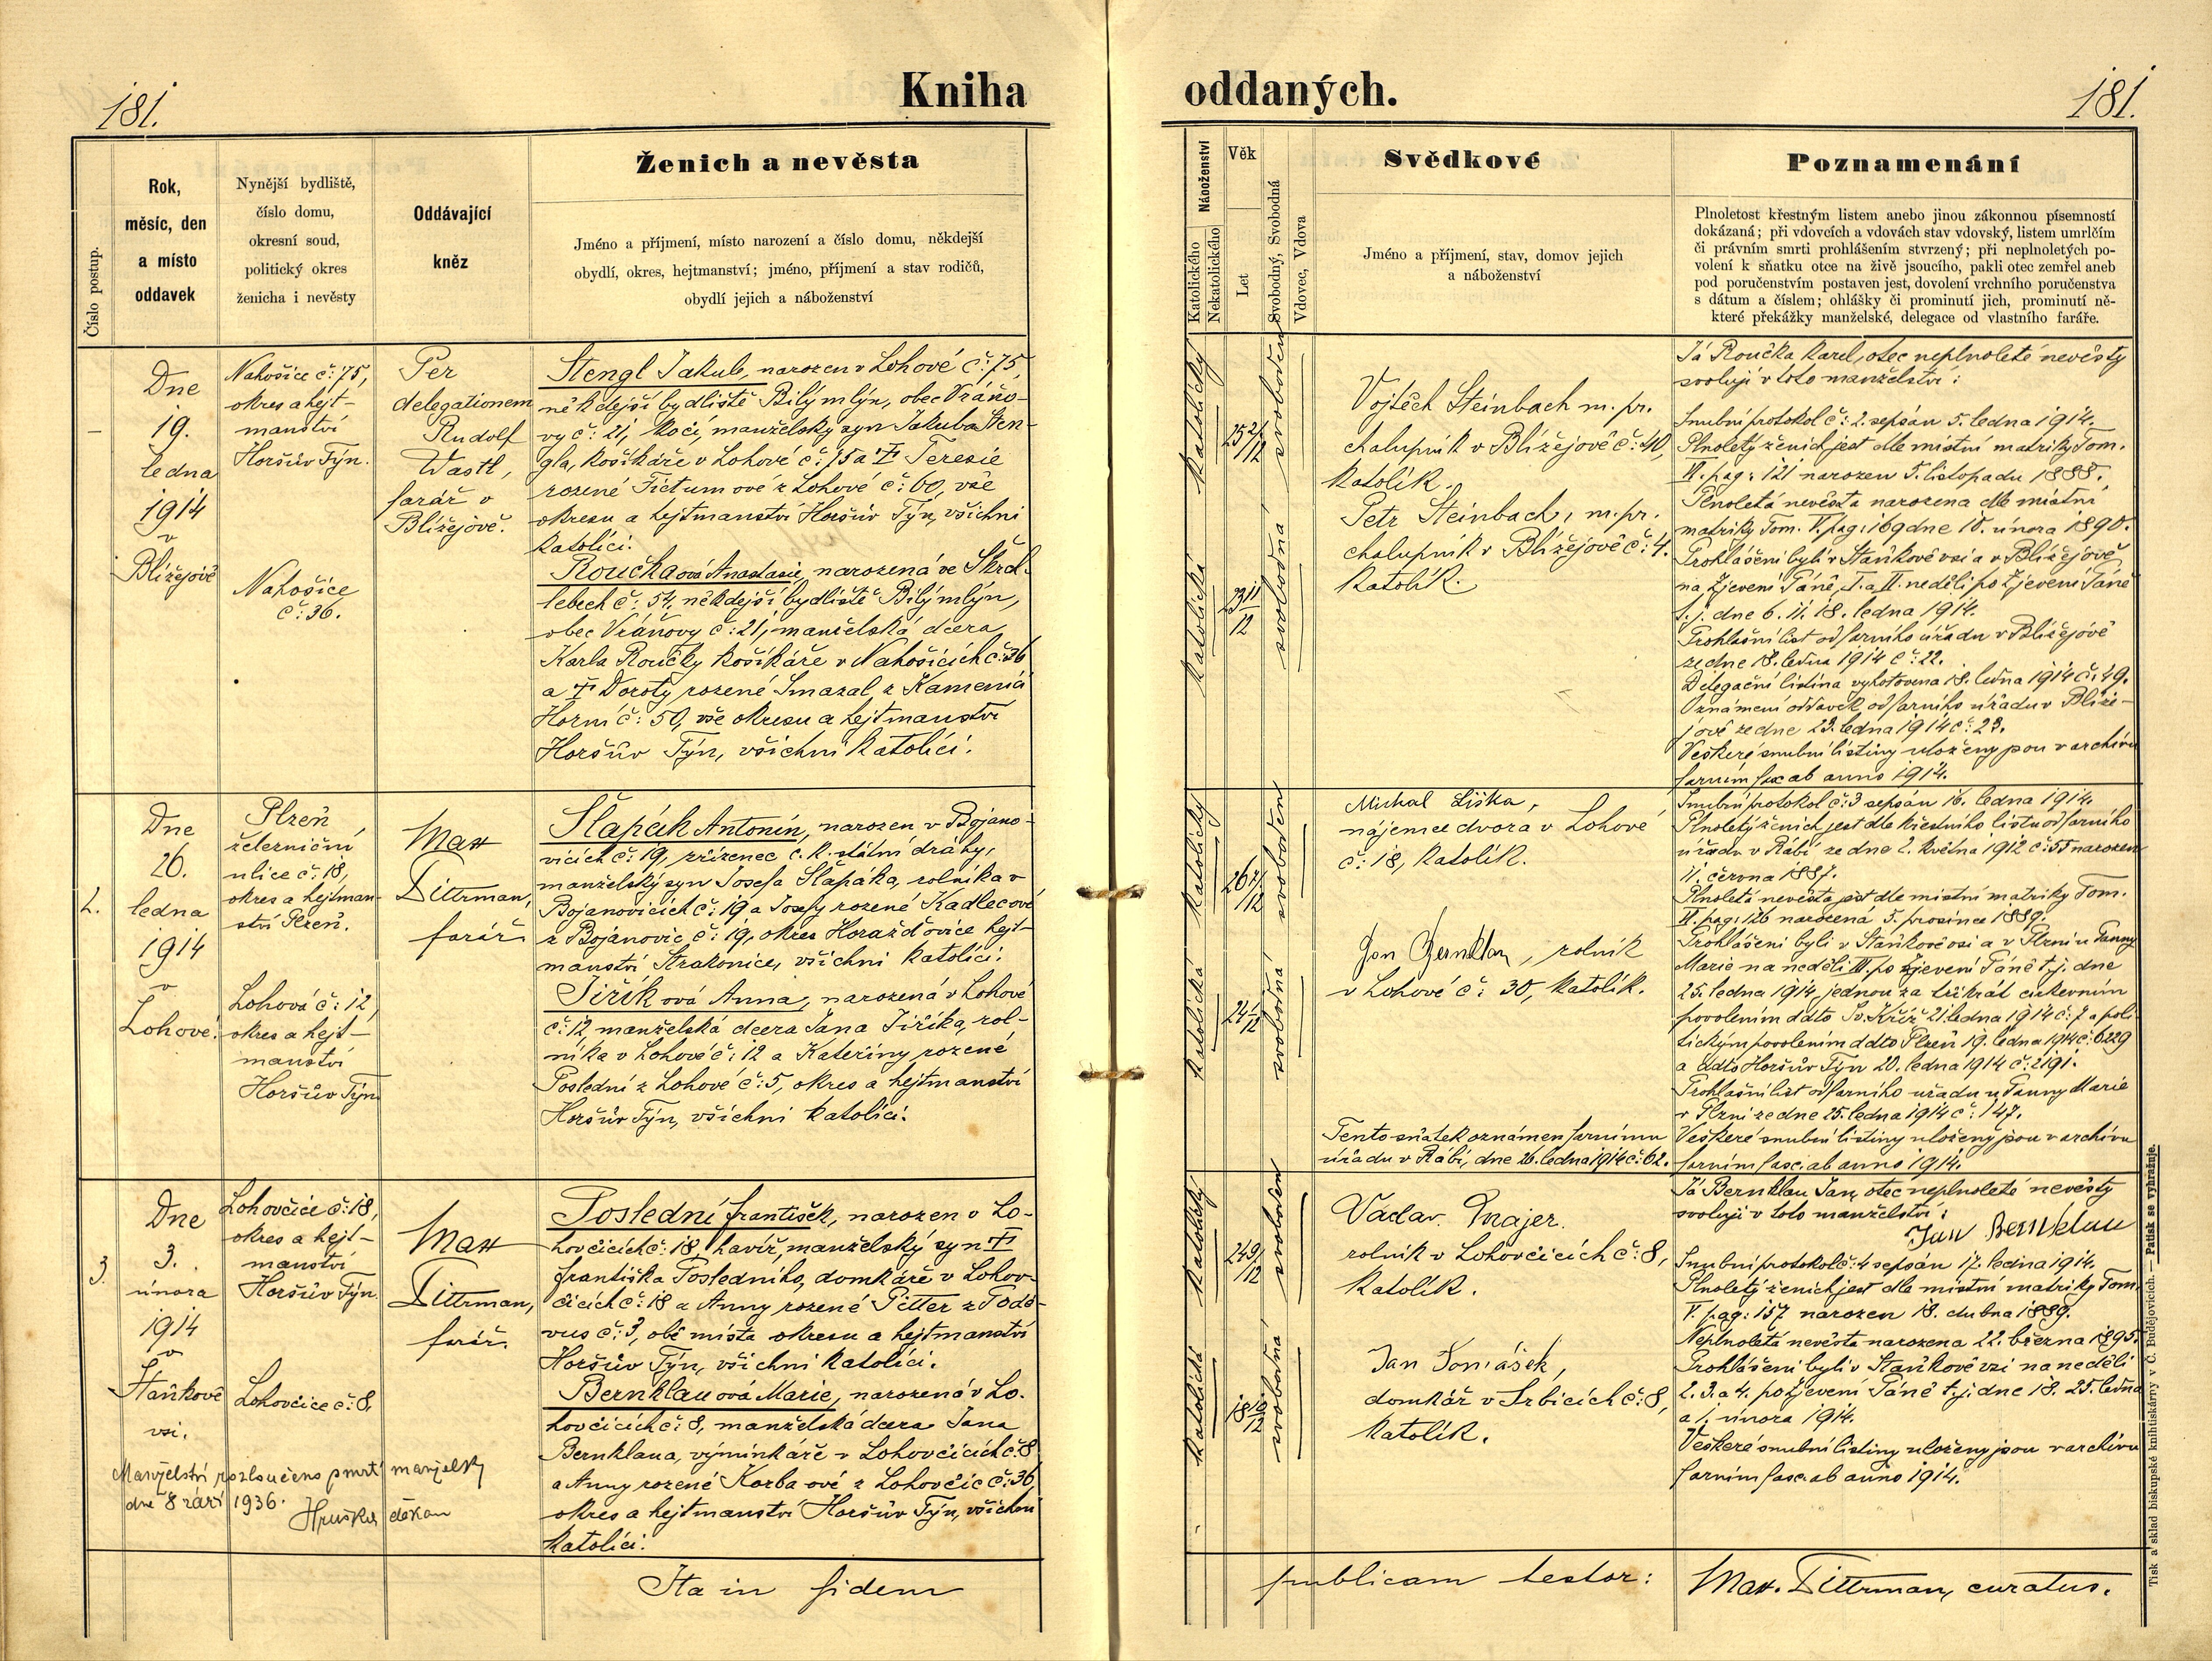 181.
Kniha
Číslo postup.
Rok,
měsíc, den
a místo
oddavek
Nynější bydliště,
číslo domu,
okresní soud,
politický okres
ženicha i nevěsty
Oddávající
kněz
Ženich a nevěsta
Jméno a příjmení, místo narození a číslo domu, někdejší
obydlí, okres, hejtmanství; jméno, příjmení a stav rodičů,
obydlí jejich a náboženství
Dne
19.
ledna
1914
v
Blížejově
Nahošice č: 75,
okres a hejt-
manství
Horšův Týn.
Nahošice
č: 36.
Per
delegationem
Rudolf
Wastl,
farář v
Blížejově.
Stengl Jakub, narozen v Lohové č: 75,
někdejší bydliště Bílý mlýn, obec Vráno-
vy č: 21, kočí, manželský syn Jakuba Sten-
gla, košíkáře v Lohové č: 75 a † Teresie
rozené Fictumové z Lohové č: 60, vše
okresu a hejtmanství Horšův Týn, všichni
katolíci.
Roučkaová Anastasie, narozená ve Škrch-
lebech č: 54, někdejší bydliště Bílý mlýn,
obec Vráňovy č: 21, manželská dcera
Karla Roučky košíkáře v Nahošicích č: 36
a † Doroty rozené Smazal z Kamenic
Horní č: 50, vše okresu a hejtmanství
Horšův Týn, všichni katolíci.
2.
Dne
26.
ledna
1914
v
Lohové.
Plzeň
železniční
ulice č: 18,
okres a hejtman-
ství Plzeň.
Lohová č: 12,
okres a hejt-
manství
Horšův Týn
Max
Dittrman,
farář.
Šlapák Antonín, narozen v Bojano-
vicích č: 19, zřízenec c. k. státní dráhy,
manželský syn Josefa Šlapáka, rolníka v
Bojanovicích č: 19 a Josefy rozené Kadlecové
z Bojanovic č: 19, okres Horažďovice hejt-
manství Strakonice, všichni katolíci.
Jiřík ová Anna, narozená v Lohové
č: 12, manželská dcera Jana Jiříka, rol-
níka v Lohové č: 12 a Kateřiny rozené
Poslední z Lohové č: 5, okres a hejtmanství
Horšův Týn, všichni katolíci.
3.
Dne
3.
února
1914
v
Staňkově
vsi.
Lohovčice č: 18,
okres a hejt-
manství
Horšův Týn
Lohovčice č: 8.
Max
Dittrman,
farář.
Poslední František, narozen v Lo-
hovčicích č: 18, havíř, manželský syn †
Františka Posledního, domkáře v Lohov-
čicích č: 18 a Anny rozené Pitter z Podě-
vus č: 3, obě místa okresu a hejtmanství
Horšův Týn, všichni katolíci.
Bernklau ová Marie, narozená v Lo-
hovčicích č: 8, manželská dcera Jana
Bernklaua, výminkáře v Lohovčicích č: 8
a Anny rozené Korba ové z Lohovčic č: 36,
okres a hejtmanství Horšův Týn, všichni
katolíci.
Manželství rozloučeno smrtí manželky
dne 8 září 1936.
Hruška děkan
Ita in fidem
oddaných.
181.
Náboženství
Katolického
Nekatolického
Věk
Let
Svobodný, Svobodná
Vdovec, Vdova
Svědkové
Jméno a příjmení, stav, domov jejich
a náboženství
Poznamenání
Plnoletost křestným listem anebo jinou zákonnou písemností
dokázaná; při vdovcích a vdovách stav vdovský, listem umrlčím
či právním smrti prohlášením stvrzený; při neplnoletých po-
volení k sňatku otce na živě jsoucího, pakli otec zemřel aneb
pod poručenstvím postaven jest, dovolení vrchního poručenstva
s dátum a číslem; ohlášky či prominutí jich, prominutí ně-
které překážky manželské, delegace od vlastního faráře.
katolický
25 2/12
svoboden
katolická
23 11/12
svobodná
Vojtěch Steinbach m. pr.
chalupník v Blížejově č: 40,
katolík.
Petr Steinbach, m. pr.
chalupník v Blížejově č: 4.
katolík.
Já Roučka Karel, otec neplnoleté nevěsty
svoluji v toto manželství:
Snubní protokol č: 2. sepsán 5. ledna 1914.
Plnoletý ženich jest dle místní matriky Tom.
VI. pag: 121 narozen 5. listopadu 1888.
Plnoletá nevěsta narozena dle místní
matriky Tom. V. pag: 169 dne 10. února 1890.
Prohlášeni byli v Staňkově vsi a v Blížejově
na Zjevení Páně, I. a II. neděli po Zjevení Páně
t. j. dne 6. 11. 18. ledna 1914.
Prohlašní list od farního úřadu v Blížejově
ze dne 18. ledna 1914 č: 22.
Delegační listina vyhotovena 18. ledna 1914 č: 49.
Oznámení oddavek od farního úřadu v Blíže-
jově ze dne 23. ledna 1914 č: 23.
Veškeré snubní listiny uloženy jsou v archivu
farním fasc. ab anno 1914.
katolický
svoboden
katolická
24 1/12
svobodná
Michal Liška,
nájemce dvora v Lohové
č: 18, katolík.
Jan Bernklau, rolník
v Lohové č: 30, katolík.
Tento sňatek oznámen farnímu
úřadu v Rábí, dne 26. ledna 1914 č: 62.
Snubní protokol č: 3 sepsán 16. ledna 1914.
Plnoletý ženich jest dle křestního listu od farního
úřadu v Rábí ze dne 2. května 1912 č: 55 narozen
11. června 1887.
Plnoletá nevěsta jest dle místní matriky Tom.
VI. pag: 126 narozena 5. prosince 1889.
Prohlášeni byli v Staňkově vsi a v Plzni u Panny
Marie na neděli III. po Zjevení Páně t. j. dne
25. ledna 1914 jednou za třikrát církevním
povolením ddto Sv. Kříž 21. ledna 1914 č: 7 a poli-
tickým povolením ddto Plzeň 19. ledna 1914 č: 6229
a ddto Horšův Týn 20. ledna 1914 č: 2191.
Prohlašní list od farního úřadu u Panny Marie
v Plzni ze dne 25. ledna 1914 č: 147.
Veškeré snubní listiny uloženy jsou v archivu
farním fasc. ab anno 1914.
katolický
24 9/12
svoboden
katolická
18 10/12
svobodná
Václav Majer.
rolník v Lohovčicích č: 8,
katolík.
Jan Tomášek,
domkář v Srbicích č: 8,
katolík.
Já Bernklau Jan, otec neplnoleté nevěsty
svoluji v toto manželství:
Jan Bernklau
Snubní protokol č: 4 sepsán 17. ledna 1914.
Plnoletý ženich jest dle místní matriky Tom.
V. pag: 157 narozen 18. dubna 1889.
Neplnoletá nevěsta narozena 22. března 1895.
Prohlášeni byli v Staňkově vsi na neděli
2. 3. a 4. po Zjevení Páně t. j. dne 18. 25. ledna
a 1. února 1914.
Veškeré snubní listiny uloženy jsou v archivu
farním fasc. ab anno 1914.
publicam testor:
Max. Dittrman, curatus.
Tisk a sklad biskupské knihtiskárny v Č. Budějovicích. — Patisk se vyhražuje.